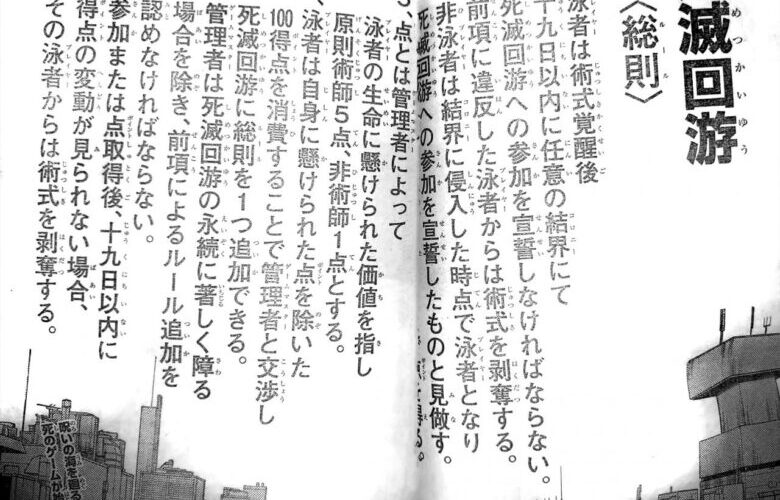 滅回游
〈総則〉
泳者は術式覚醒後
十九日以内に任意の結界にて
死滅回游への参加を宣誓しなければならない。
前項に違反した泳者からは術式を剥奪する。
非泳者は結界に侵入した時点で泳者となり
死滅回游への参加を宣誓したものと見做す。
る。
点とは管理者によって
泳者の生命に懸けられた価値を指し
原則術師5点、非術師1点とする。
泳者は自身に懸けられた点を除いた
100得点を消費することで管理者と交渉し
死滅回游に総則を1つ追加できる。
管理者は死滅回游の永続に著しく障る
場合を除き、前項によるルール追加を
認めなければならない。
参加または点取得後、十九日以内に
得点の変動が見られない場合、
その泳者からは術式を剥奪する。
呪いの海を廻る
死のゲームが